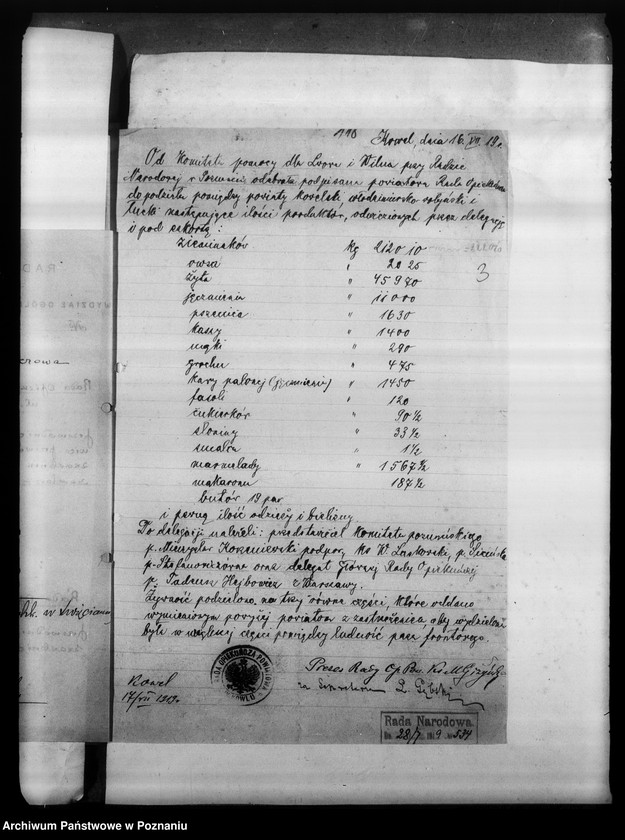 110
Kowel, dnia 16. VII. 19 r.
Od Komitetu pomocy dla Lwowa i Wilna przy Radzie
Narodowej w Poznaniu odebrała podpisana powiatowa Rada Opiekuńcza
do podziału pomiędzy powiaty kowelski, włodzimiersko wołyński i
łucki następujące ilości produktów, odwiezionych przez delegację
i pod eskortą:
ziemniaków kg 212010
owsa " 2025
żyta " 45970
jęczmienia " 11000
pszenica " 1630
kaszy " 1400
mąki " 290
grochu " 475
kawy palonej (jęczmienia) " 1450
fasoli " 120
cukierków " 90 1/2
słoniny " 33 1/2
smalcu " 1 1/2
marmelady " 1567 1/2
makaronu 187 1/2
butów 19 par
i pewną ilość odzieży i bielizny
Do delegacji należeli: przedstawiciel Komitetu poznańskiego
p. Mieczysław Korzeniewski podpor, ks W. Laskowski, p.
p. oraz delegat Głównej Rady Opiekuńczej
p. Tadeusz z Warszawy.
Żywność podzielono na trzy równe części, które oddano
wymienionym powyżej powiatom z zastrzeżeniem, aby wydzielone
były w większej części pomiędzy ludność pasa frontowego.
Kowel
17/VII 1919.
Prezes Rady Op Pow. Ks M
za Sekretarza
RADA OPIEKUŃCZA POWIATOWA
W KOWLU
Rada Narodowa.
Dn. 28/7 1919 No 534
3
RAD
WYDZIAŁ OGÓL
Archiwum Państwowe w Poznaniu